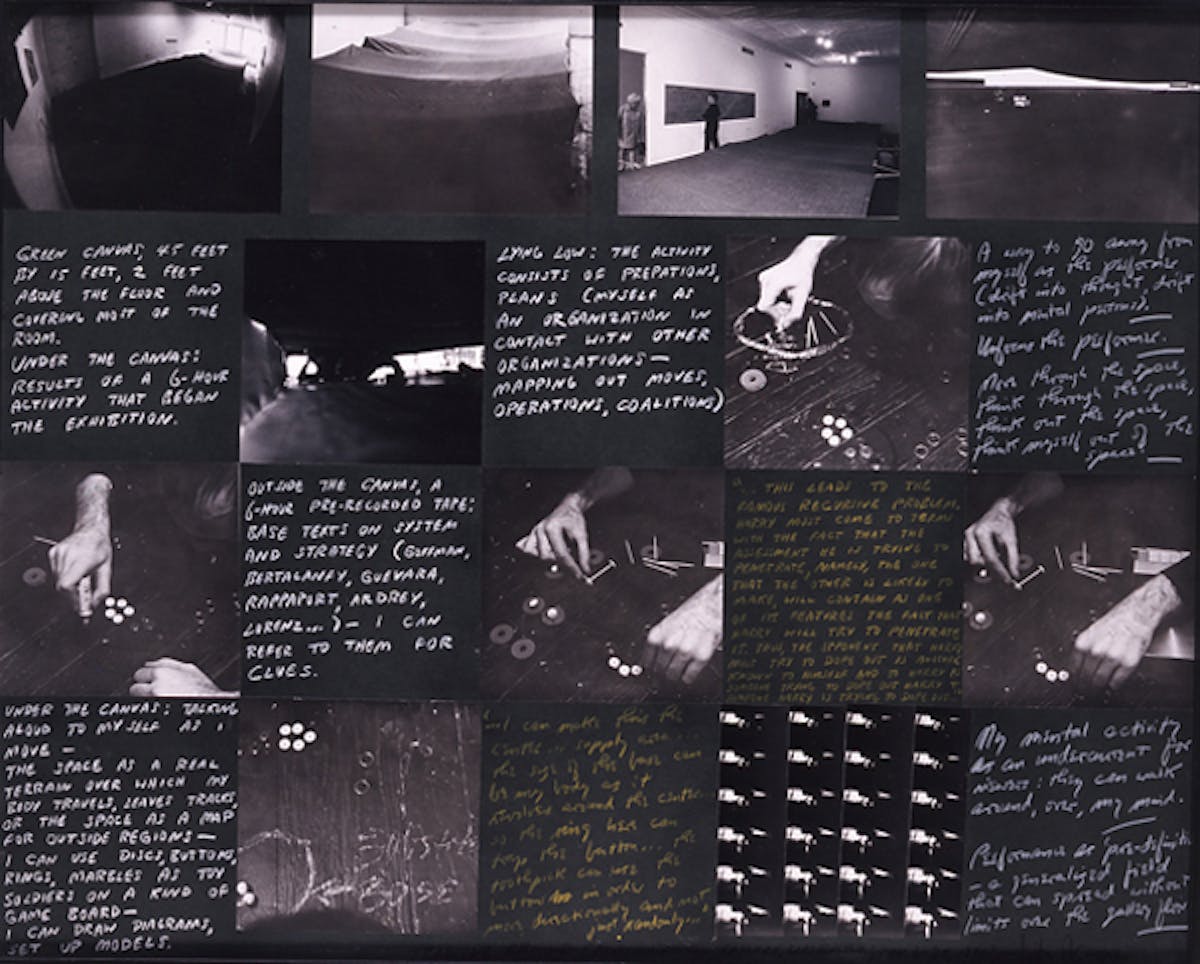 GREEN CANVAS, 45 FEET
BY 15 FEET, 2 FEET
ABOVE THE FLOOR AND
COVERING MOST OF THE
ROOM.
UNDER THE CANVAS:
RESULTS OF A 6-HOUR
ACTIVITY THAT BEGAN
THE EXHIBITION.
LYING LOW: THE ACTIVITY
CONSISTS OF PREPATIONS,
PLANS (MYSELF AS
AN ORGANIZATION IN
CONTACT WITH OTHER
ORGANIZATIONS—
MAPPING OUT MOVES,
OPERATIONS, COALITIONS)
A way to go away from
myself as the performer
(drift into thought, drift
into mental patterns).
the performer.
Move through the space,
think through the space,
think out the space,
think myself out of the
space.
OUTSIDE THE CANVAS, A
6-HOUR PRE-RECORDED TAPE:
BASE TEXTS ON SYSTEM
AND STRATEGY (GOFFMAN,
BERTALANFY, GUEVARA,
RAPPAPORT, ARDREY,
LORENZ...)— I CAN
REFER TO THEM FOR
CLUES.
"... THIS LEADS TO THE
FAMOUS RECURSIVE PROBLEM.
HARRY MUST COME TO TERMS
WITH THE FACT THAT THE
ASSESSMENT HE IS TRYING TO
PENETRATE, NAMELY, THE ONE
THAT THE OTHER IS LIKELY TO
MAKE, WILL CONTAIN AS ONE
OF ITS FEATURES THE FACT THAT
HARRY WILL TRY TO PENETRATE
IT. THUS, THE OPPONENT THAT HARRY
MUST TRY TO DOPE OUT IS ANOTHER
KNOWN TO HIMSELF AND TO HARRY AS
SOMEONE TRYING TO DOPE OUT HARRY
UNDER THE CANVAS: TALKING
ALOUD TO MYSELF AS I
MOVE —
THE SPACE AS A REAL
TERRAIN OVER WHICH MY
BODY TRAVELS, LEAVES TRACES,
OR THE SPACE AS A MAP
FOR OUTSIDE REGIONS—
I CAN USE DISCS, BUTTONS,
RINGS, MARBLES AS TOY
SOLDIERS ON A KIND OF
GAME BOARD—
I CAN DRAW DIAGRAMS,
SET UP MODELS.
BASE
I can make this the
centre... supply area...
the size of the base can
be my body as it
revolves around the centre...
so the ring here can
the button... the
toothpick can use the
button in order to
move directionally and not
just randomly...
My mental activity
as an undercurrent for
viewers: they can walk
around, over, my mind.
Performance as pre-definition
— a generalized field
that can spread without
limits over the gallery floor